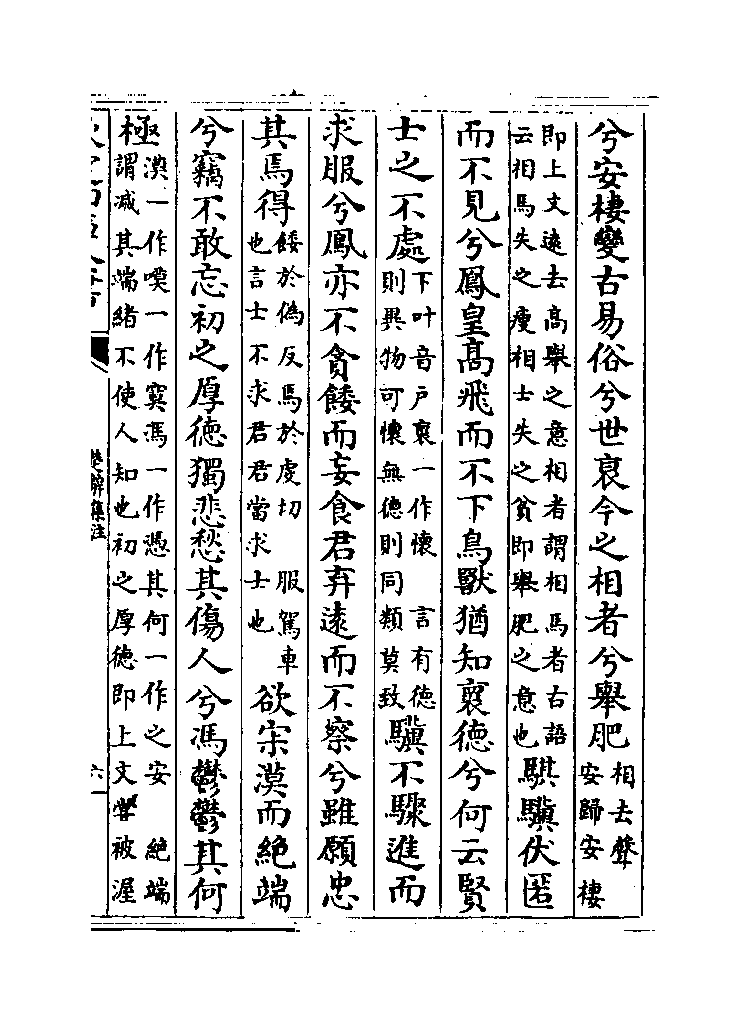 兮安棲變古易俗兮世衰今之相者兮舉肥相去聲安歸安棲
即上文遠去高舉之意相者謂相馬者古語云相馬失之瘦相士失之貧即舉肥之意也騏驥伏匿
而不見兮鳳皇髙飛而不下鳥獸猶知褱德兮何云賢
士之不處下叶音戶褱一作懷 言有德則異物可懷無德則同類莫致驥不驟進而
求服兮鳳亦不貪餧而妄食君弃遠而不察兮雖願忠
其焉得餧於偽反焉於虔切 服駕車也言士不求君君當求士也欲寂漠而絶端
兮竊不敢忘初之厚德獨悲愁其傷人兮馮鬱鬱其何
極漠一作嗼一作寞馮一作憑其何一作之安 絶端謂滅其端緒不使人知也初之厚德即上文嘗被渥
楚辭集注
六